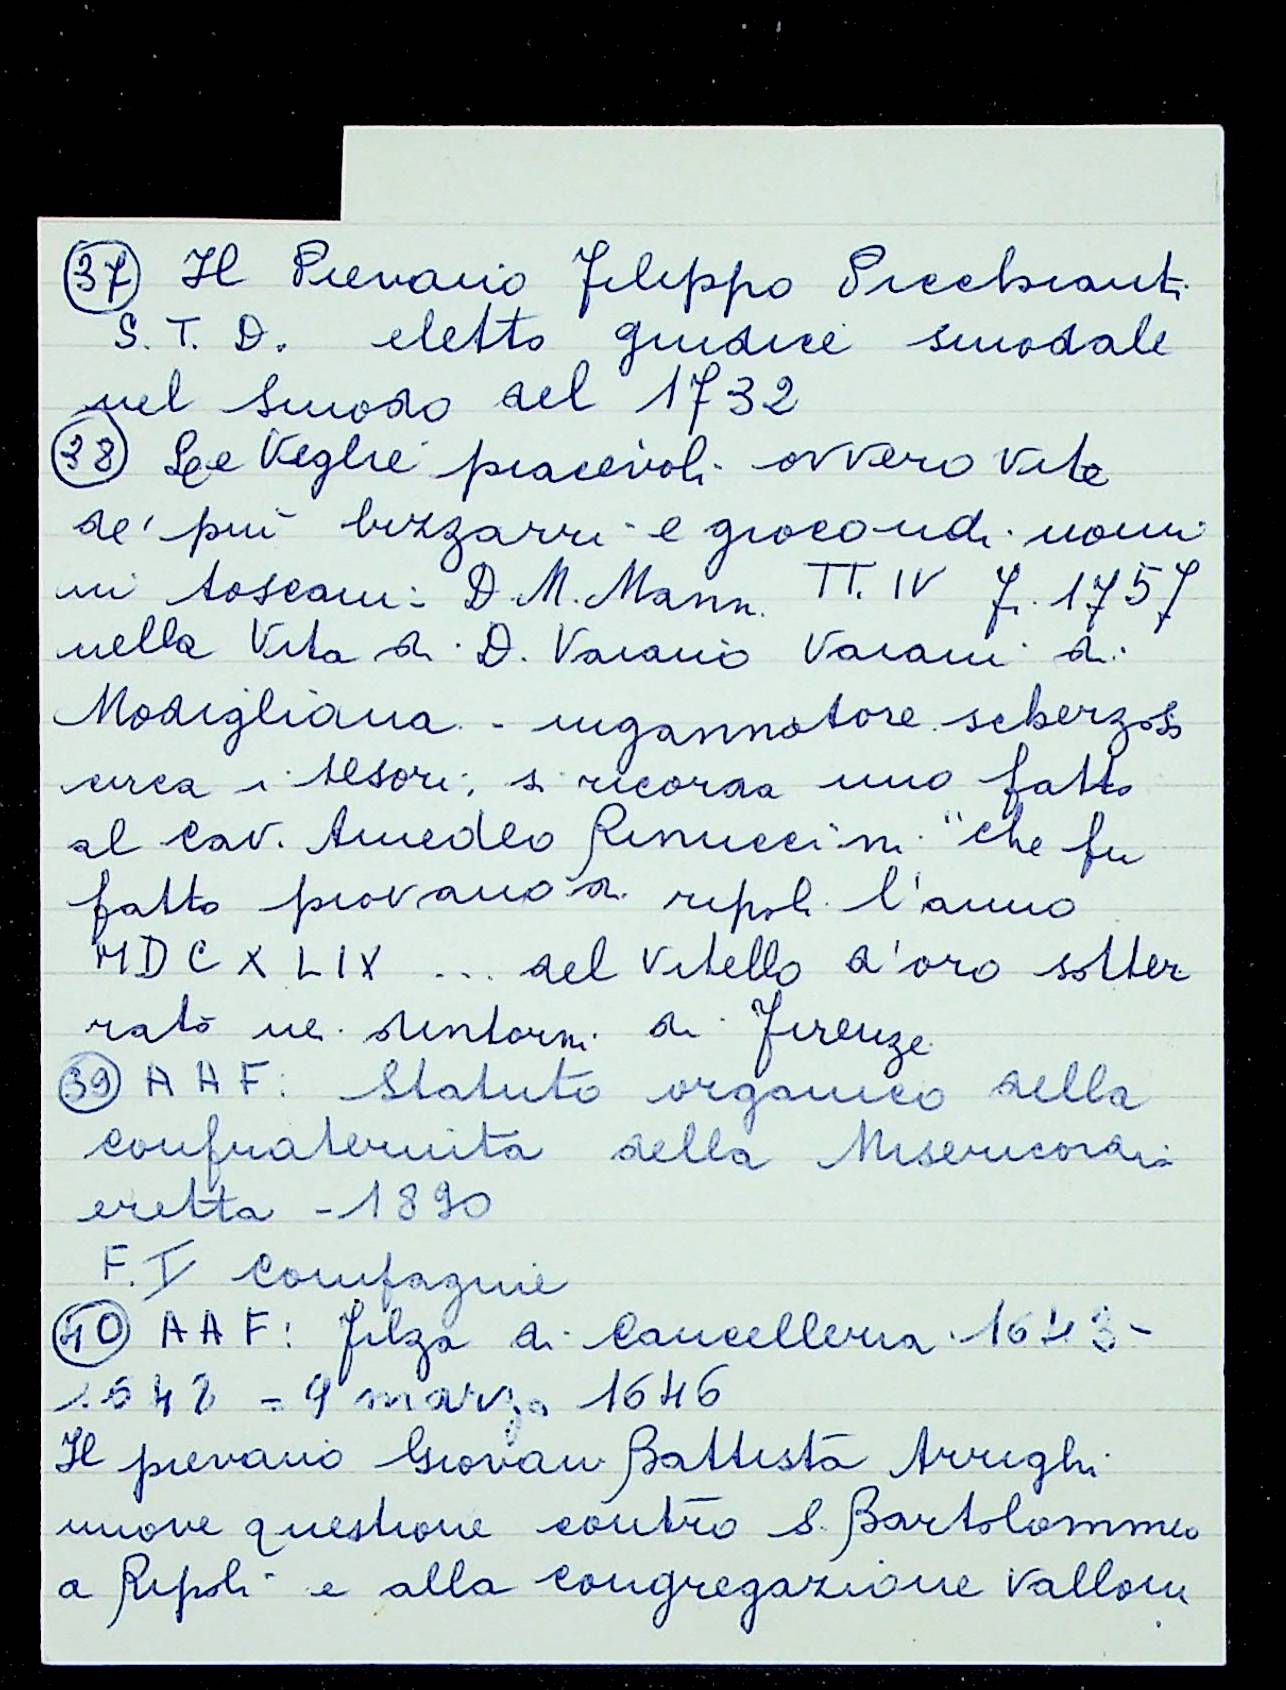 37 Il Pievano Filippo Picchianti
S. T. D. eletto giudice sinodale
nel Sinodo del 1732
38 Le Veglie piacevoli ovvero vite
de' più bizzarri e giocondi uomi
ni toscani: D. M. Mann. TT. IV F. 1757
nella Vita di D. Vaiano Vaiani di
Modigliana - ingannatore scherzoso
circa i tesori; si ricorda uno fatto
al Cav. Amedeo Rinuccini "che fu
fatto piovano di ripoli l'anno
MDCXLIX ... del Vitello d'oro sotter
rato nei dintorni di Firenze
39 A A F: Statuto organico della
confraternita della Misericordia
eretta - 1890
F. I Compagnie
40 A A F: Filza di Cancelleria 1643-
1648 = 9 marzo 1646
Il pievano Giovan Battista Arrighi
muove questione contro S. Bartolommeo
a Ripoli e alla congregazione vallom